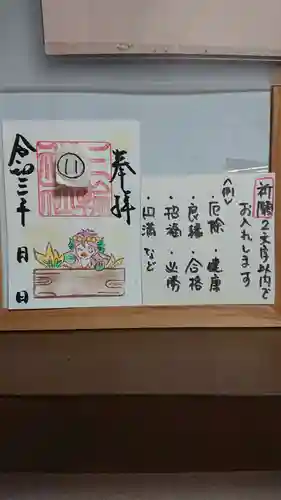 奉拝
令和三年 月 日
祈願2文字以内で
お入れします
〈例〉
・厄除 ・健康
・良縁 ・合格
・招福 ・必勝
・円満 など